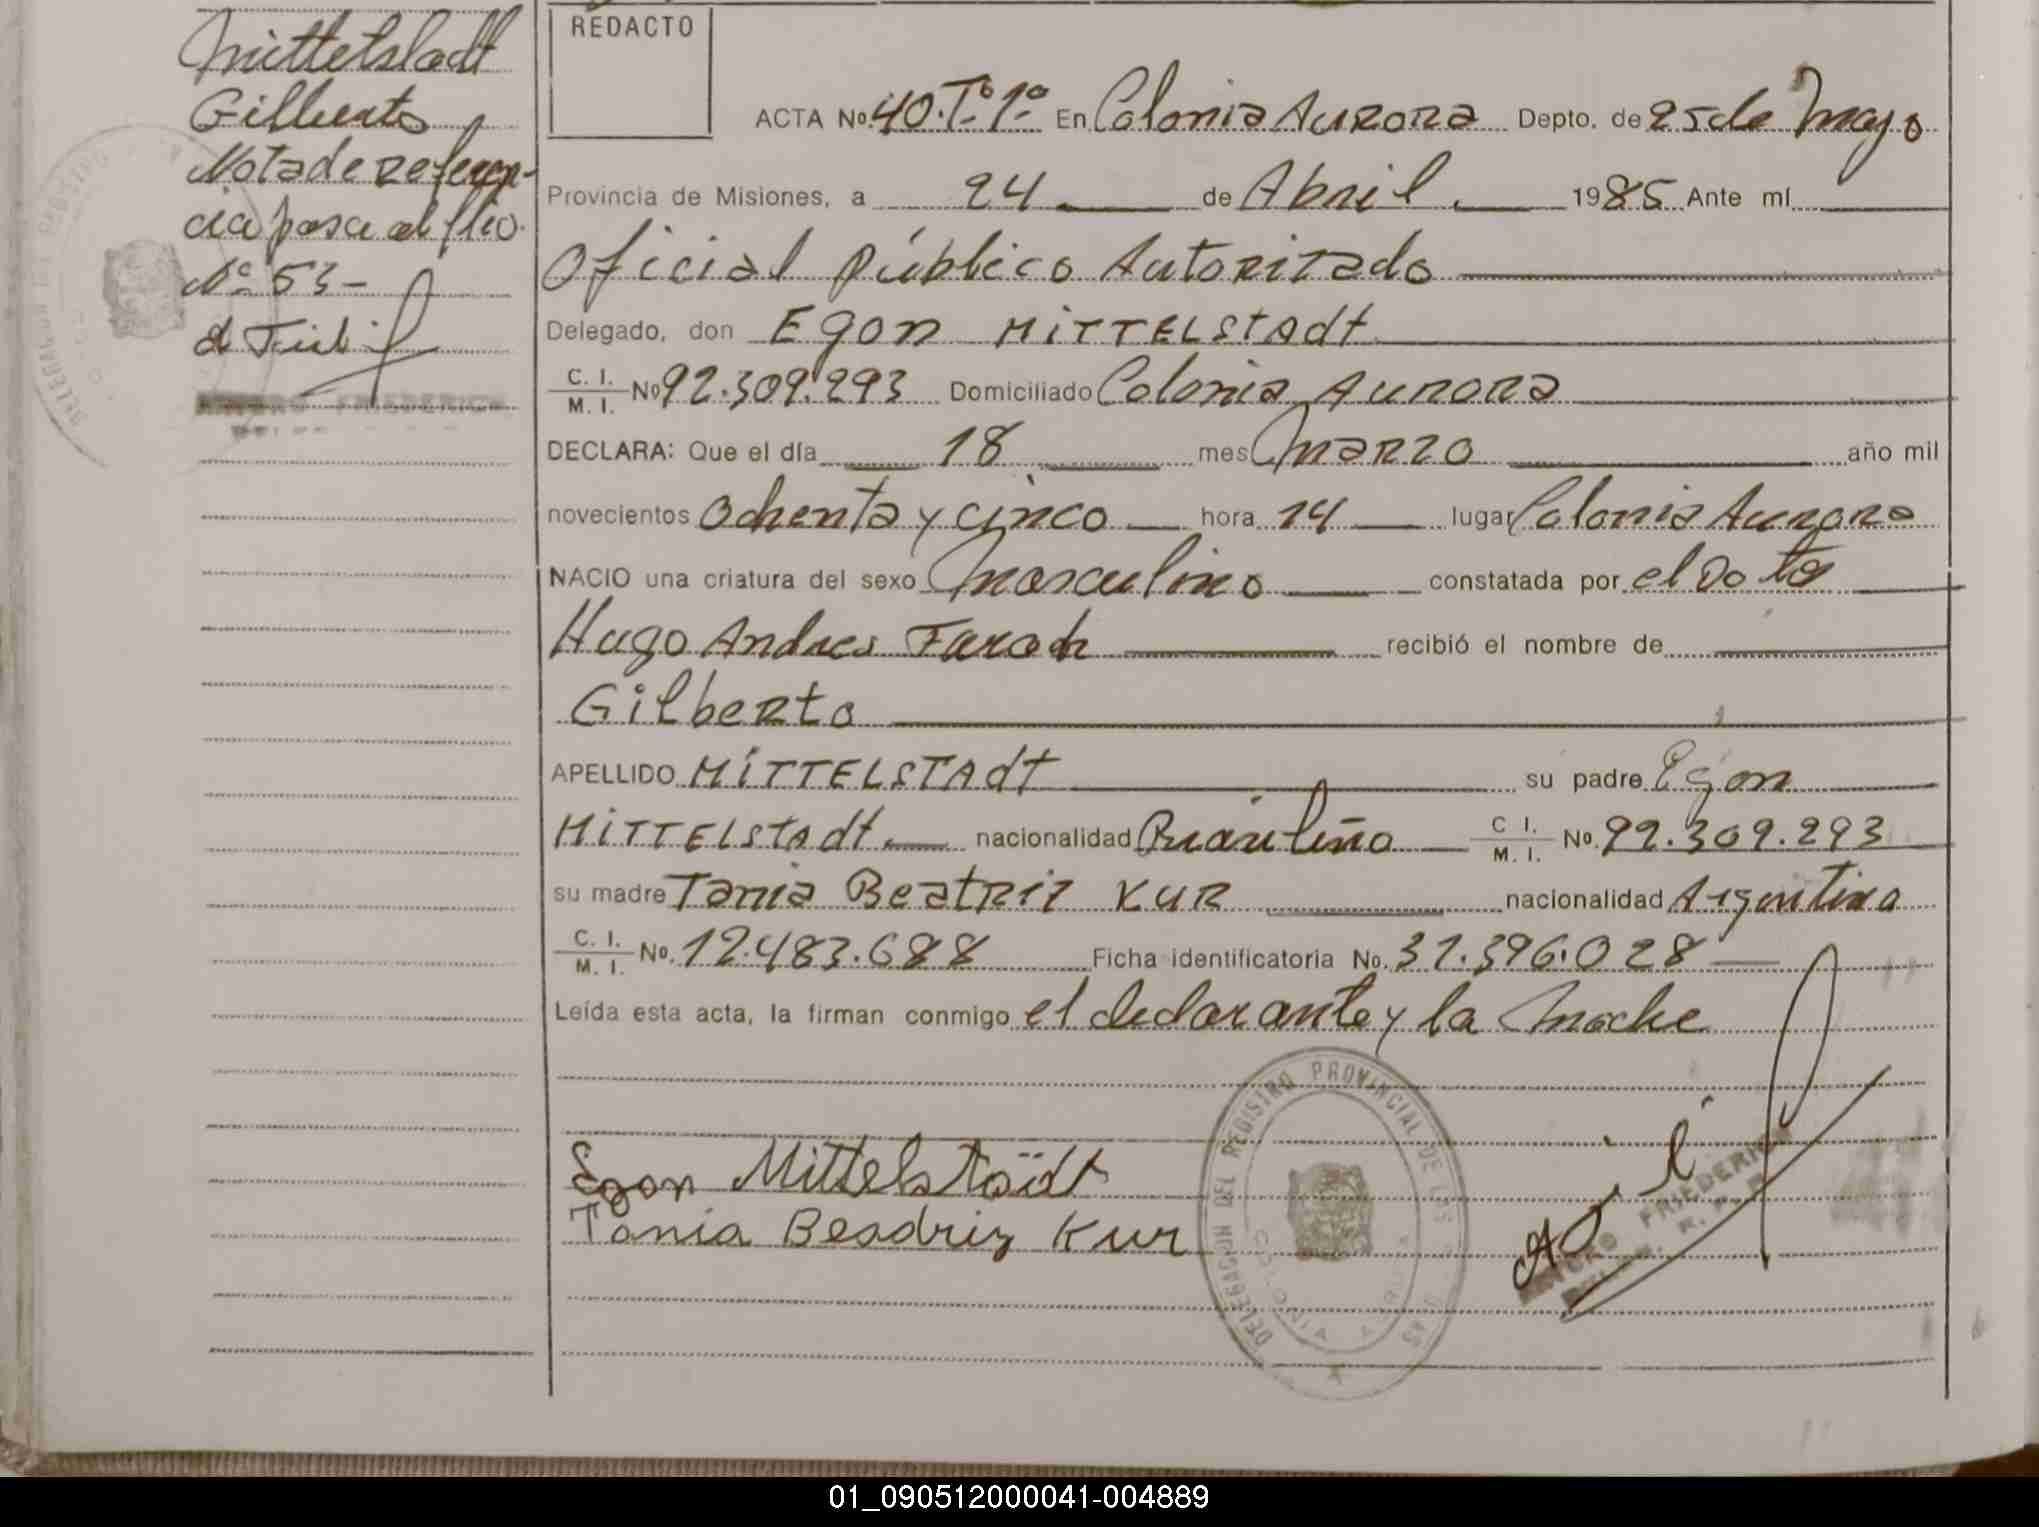 Mittelstadt
Gilberto
Nota de referen-
cia pasa al flio.
Nº 53-
REDACTO
ACTA No. 40. Tº. 1º En Colonia Aurora Depto. de 25 de Mayo
Provincia de Misiones, a 24 de Abril 1985 Ante mí
Oficial Público Autorizado
Delegado, don Egon MITTELSTAdt
C. I. / M. I. No 92.309.293 Domiciliado Colonia Aurora
DECLARA: Que el día 18 mes Marzo año mil
novecientos Ochenta y cinco hora 14 lugar Colonia Aurora
NACIO una criatura del sexo Masculino constatada por el
Hugo Andres recibió el nombre de
Gilberto
APELLIDO MITTELSTAdt su padre Egon
MITTELSTAdt nacionalidad Brasileño C I. / M. I. No. 92.309.293
su madre Tania Beatriz KUR nacionalidad Argentina
C. I. / M. I. No. 12.483.688 Ficha identificatoria No. 31.396.028
Leída esta acta, la firman conmigo el declarante y la Madre
Egon Mittelstädt
Tania Beadriz Kur
DELEGACION DEL REGISTRO PROVINCIAL DE LAS
COLONIA
FRIEDERICH
01_090512000041-004889